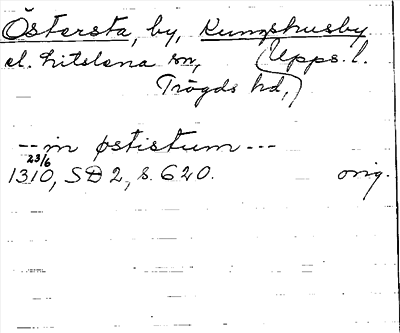 Östersta, by, Kungshusby
el. Litslena sn, Upps. l.
Trögds hd,
-- in østistum ---
23/6
1310, SD 2, s. 620. orig.